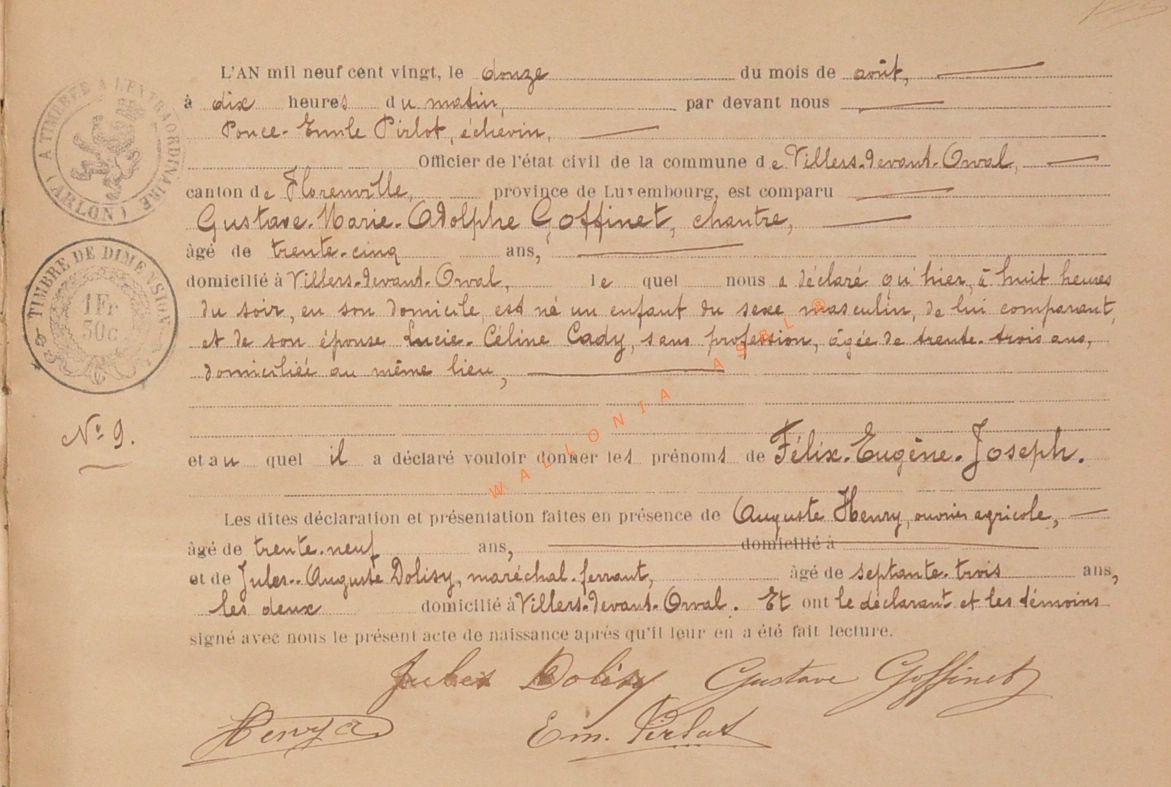 L'AN mil neuf cent vingt, le douze du mois de août,
à dix heures du matin, par devant nous
Ponce-Emile Pirlot, échevin,
Officier de l'état civil de la commune de Villers-devant-Orval,
canton de Florenville, province de Luxembourg, est comparu
Gustave-Marie-Adolphe Goffinet, chantre,
âgé de trente-cinq ans,
domicilié à Villers-devant-Orval, le quel nous a déclaré qu'hier, à huit heures
du soir, en son domicile, est né un enfant du sexe masculin, de lui comparant,
et de son épouse Lucie-Céline Cady, sans profession, âgée de trente-trois ans,
domiciliée au même lieu,
et au quel il a déclaré vouloir donner les prénoms de Félix-Eugène-Joseph.
Les dites déclaration et présentation faites en présence de Auguste Henry, ouvrier agricole,
âgé de trente-neuf ans, domicilié à
et de Jules-Auguste Dolisy, maréchal-ferrant, âgé de septante-trois ans,
les deux domicilié à Villers-devant-Orval. Et ont le déclarant et les témoins
signé avec nous le présent acte de naissance après qu'il leur en a été fait lecture.
Jules Dolisy Gustave Goffinet
Henry A Em. Pirlot
A TIMBRER A L'EXTRAORDINAIRE
(ARLON)
TIMBRE DE DIMENSION
1 Fr
50c
N° 9.
WALLONIA ASBL ®